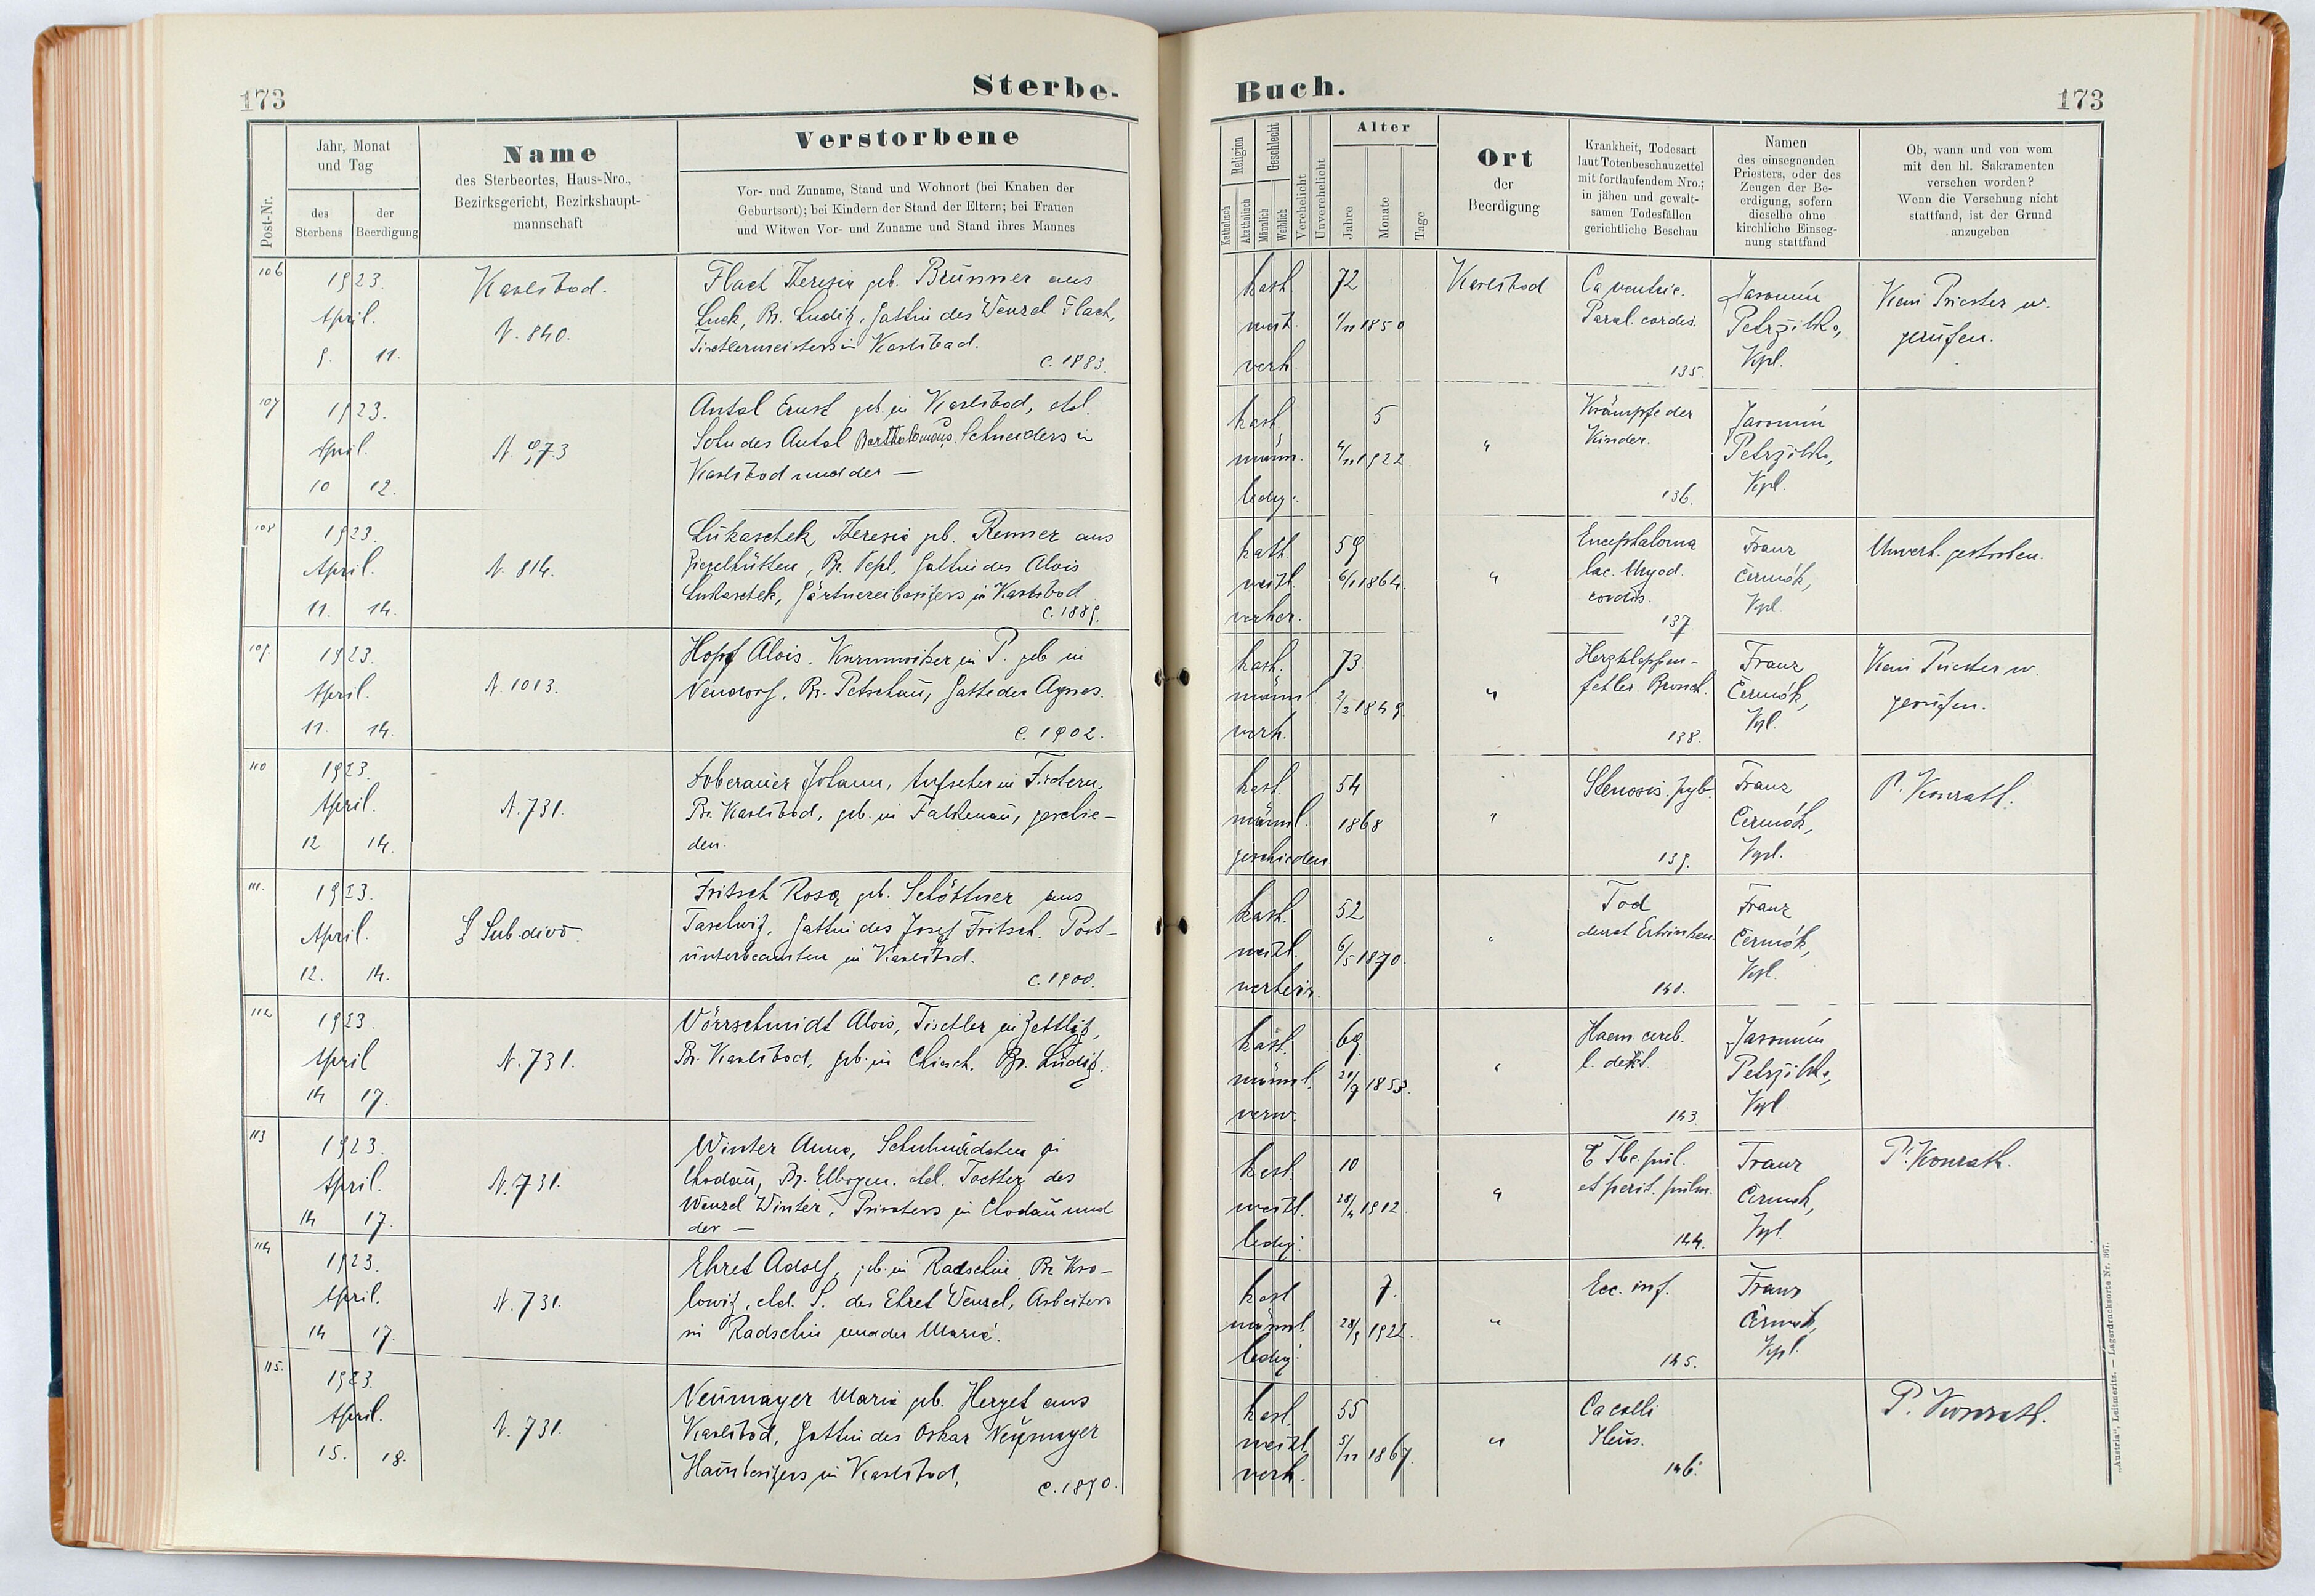 173
Sterbe-
Post-Nr.
Jahr, Monat
und Tag
des
Sterbens
der
Beerdigung
Name
des Sterbeortes, Haus-Nro.,
Bezirksgericht, Bezirkshaupt-
mannschaft
Verstorbene
Vor- und Zuname, Stand und Wohnort (bei Knaben der
Geburtsort); bei Kindern der Stand der Eltern; bei Frauen
und Witwen Vor- und Zuname und Stand ihres Mannes
106
1923.
April.
9. 11.
Karlsbad.
N. 840.
Flach Theresia geb. Brunner aus
Luck, Bz. Luditz, Gattin des Wenzel Flach,
Tischlermeisters in Karlsbad.
C. 1883.
107
1923.
April.
10 12.
N. 973
Antal Ernst geb. in Karlsbad, ehel.
Sohn des Antal Bartholomäus Schneiders in
Karlsbad und der —
108
1923.
April.
11. 14.
N. 814.
Lukaschek Theresia geb. Renner aus
Ziegelhütten, Bz. Tepl, Gattin des Alois
Lukaschek, Gärtnereibesitzers in Karlsbad
C. 1889.
109.
1923.
April.
11. 14.
N. 1013.
Hopf Alois, in P. geb in
Neudorf, Bz. Petschau, Gatte der Agnes.
C. 1902.
110
1923.
April.
12 14.
N. 731.
Doberauer Johann, Aufseher in Fischern,
Bz. Karlsbad, geb. in Falkenau, geschie-
den.
111.
1923.
April.
12. 14.
Sub divo.
Fritsch Rosa geb. Schöttner aus
Taschwitz, Gattin des Josef Fritsch, Post-
unterbeamten in Karlsbad.
C. 1900.
112
1923.
April
14 17.
N. 731.
Vörrschmidt Alois, Tischler in Zettlitz,
Bz. Karlsbad, geb. in Chiesch, Bz. Luditz.
113
1923.
April.
14 17.
N. 731.
Winter Anna, Schulmädchen in
Chodau, Bz. Elbogen, ehel. Tochter des
Wenzel Winter, Privaters in Chodau und
der —
114
1923.
April.
14 17.
N. 731.
Ehret Adolf, geb. in Radschin, Bz. Kra-
lowitz, ehel. S. des Ehret Wenzel, Arbeiters
in Radschin und der Maria.
115.
1923.
April.
15. 18.
N. 731.
Neumayer Maria geb. Herget aus
Karlsbad, Gattin des Oskar Neumayer
Hausbesitzers in Karlsbad,
C. 1890.
Buch.
173
Religion
Katholisch
Akatholisch
Geschlecht
Männlich
Weiblich
Verehelicht
Unverehelicht
Alter
Jahre
Monate
Tage
Ort
der
Beerdigung
Krankheit, Todesart
laut Totenbeschauzettel
mit fortlaufendem Nro.;
in jähen und gewalt-
samen Todesfällen
gerichtliche Beschau
Namen
des einsegnenden
Priesters, oder des
Zeugen der Be-
erdigung, sofern
dieselbe ohne
kirchliche Einseg-
nung stattfand
Ob, wann und von wem
mit den hl. Sakramenten
versehen worden?
Wenn die Versehung nicht
stattfand, ist der Grund
anzugeben
kath.
weibl.
verh.
72
1/11 1850
Karlsbad
Ca ventric.
Paral. cordis.
135.
Jaromín
Petrzilka,
Kpl.
Kein Priester w.
gerufen.
kath.
männ.
ledig.
5
4/11 1922
"
Krämpfe der
Kinder.
136.
Jaromín
Petrzilka,
Kpl.
kath.
weibl.
verher.
59
6/1 1864.
"
lac. Myod.
cordis.
137
Franz
Čermák,
Kpl.
Unvers. gestorben.
kath.
männl.
verh.
73
2/2 1849.
"
Herzklappen-
fehler. Bronch.
138.
Franz
Čermák,
Kpl.
Kein Priester w.
gerufen.
kath.
männl.
geschieden.
54
1868
"
Stenosis. pyl.
139.
Franz
Čermák,
Kpl.
P. Konrath.
kath.
weibl.
verheir.
52
6/5 1870.
"
Tod
durch Ertrinken.
140.
Franz
Čermák,
Kpl.
kath.
männl.
verw.
69
20/7 1853.
"
Haem. cereb.
l. dext.
143.
Jaromín
Petrzilka,
Kpl.
kath.
weibl.
ledig.
10
28/4 1912.
"
Tbc. pul.
et perit. pulm.
144.
Franz
Čermák,
Kpl.
P. Konrath.
kath
männl.
ledig.
7.
28/9 1922.
"
Ecc. inf.
145.
Franz
Čermák,
Kpl.
kath.
weibl.
verh.
55
5/11 1867.
"
Ca colli
Ileus.
146.
P. Konrath.
„Austria“, Leitmeritz. — Lagerdrucksorte Nr. 367.